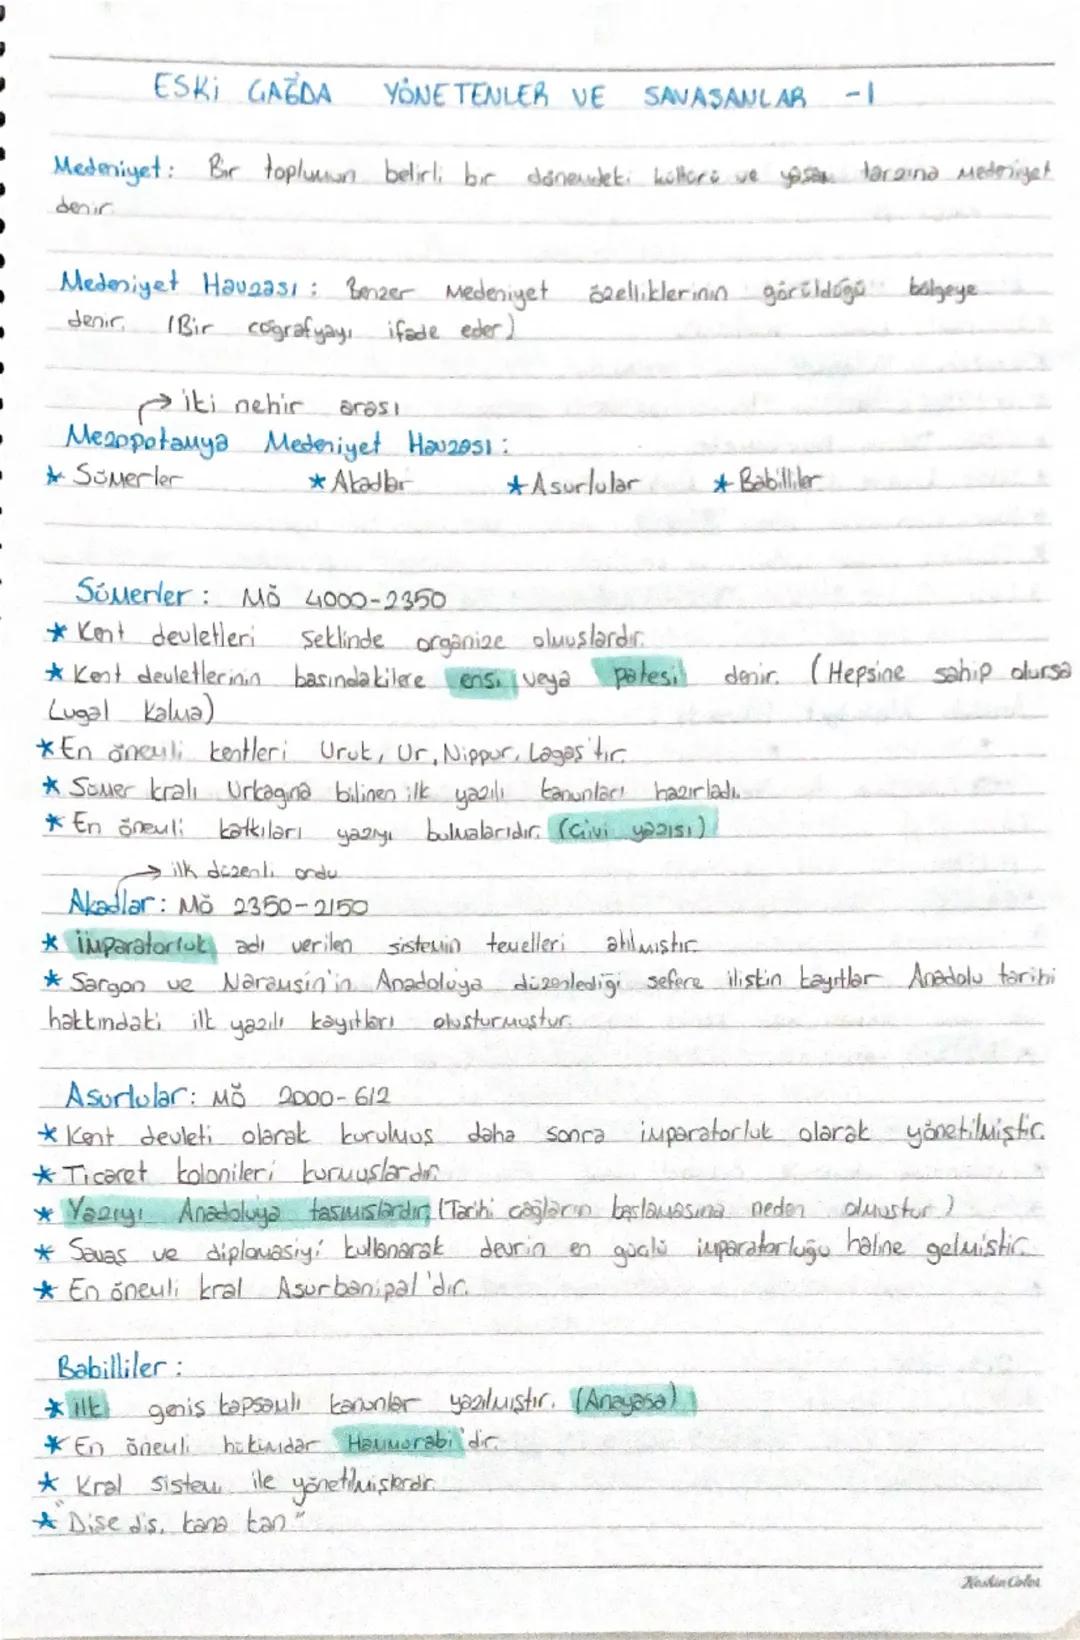 ESKİ ÇAĞDA YÖNETENLER VE SAVAŞANLAR -1
Medeniyet: Bir toplumun belirli bir dönemdeki kültürü ve yaşam tarzına medeniyet
denir.
Medeniyet Havzası: Benzer medeniyet özelliklerinin görüldüğü bölgeye
denir. (Bir coğrafyayı ifade eder)
→ iki nehir arası
Mezopotamya Medeniyet Havzası:
* Sümerler * Akadlar * Asurlular * Babilliler
Sümerler: MÖ 4000-2350
* Kent devletleri şeklinde organize olmuşlardır.
* Kent devletlerinin başındakilere ensi veya patesi denir. (Hepsine sahip olursa
Lugal Kalma)
* En önemli kentleri Uruk, Ur, Nippur, Lagaş'tır.
* Sümer kralı Urkagina bilinen ilk yazılı kanunları hazırladı.
* En önemli katkıları yazıyı bulmalarıdır. (Çivi yazısı)
→ ilk düzenli ordu
Akadlar: MÖ 2350-2150
* İmparatorluk adı verilen sistemin temelleri atılmıştır.
* Sargon ve Naramsin'in Anadoluya düzenlediği sefere ilişkin kayıtlar Anadolu tarihi
hakkındaki ilk yazılı kayıtları oluşturmuştur.
Asurlular: MÖ 2000-612
* Kent devleti olarak kurulmuş daha sonra imparatorluk olarak yönetilmiştir.
* Ticaret kolonileri kurmuşlardır.
* Yazıyı Anadoluya taşımışlardır. (Tarihi çağların başlamasına neden olmuştur)
* Savaş ve diplomasiyi kullanarak devrin en güçlü imparatorluğu haline gelmiştir.
* En önemli kral Asurbanipal'dır.
Babilliler:
* ilk geniş kapsamlı kanunlar yazılmıştır. (Anayasa)
* En önemli hükümdar Hammurabi'dir.
* Kral sistem ile yönetilmişlerdir.
* "Dişe diş, kana kan"
Keskin Color